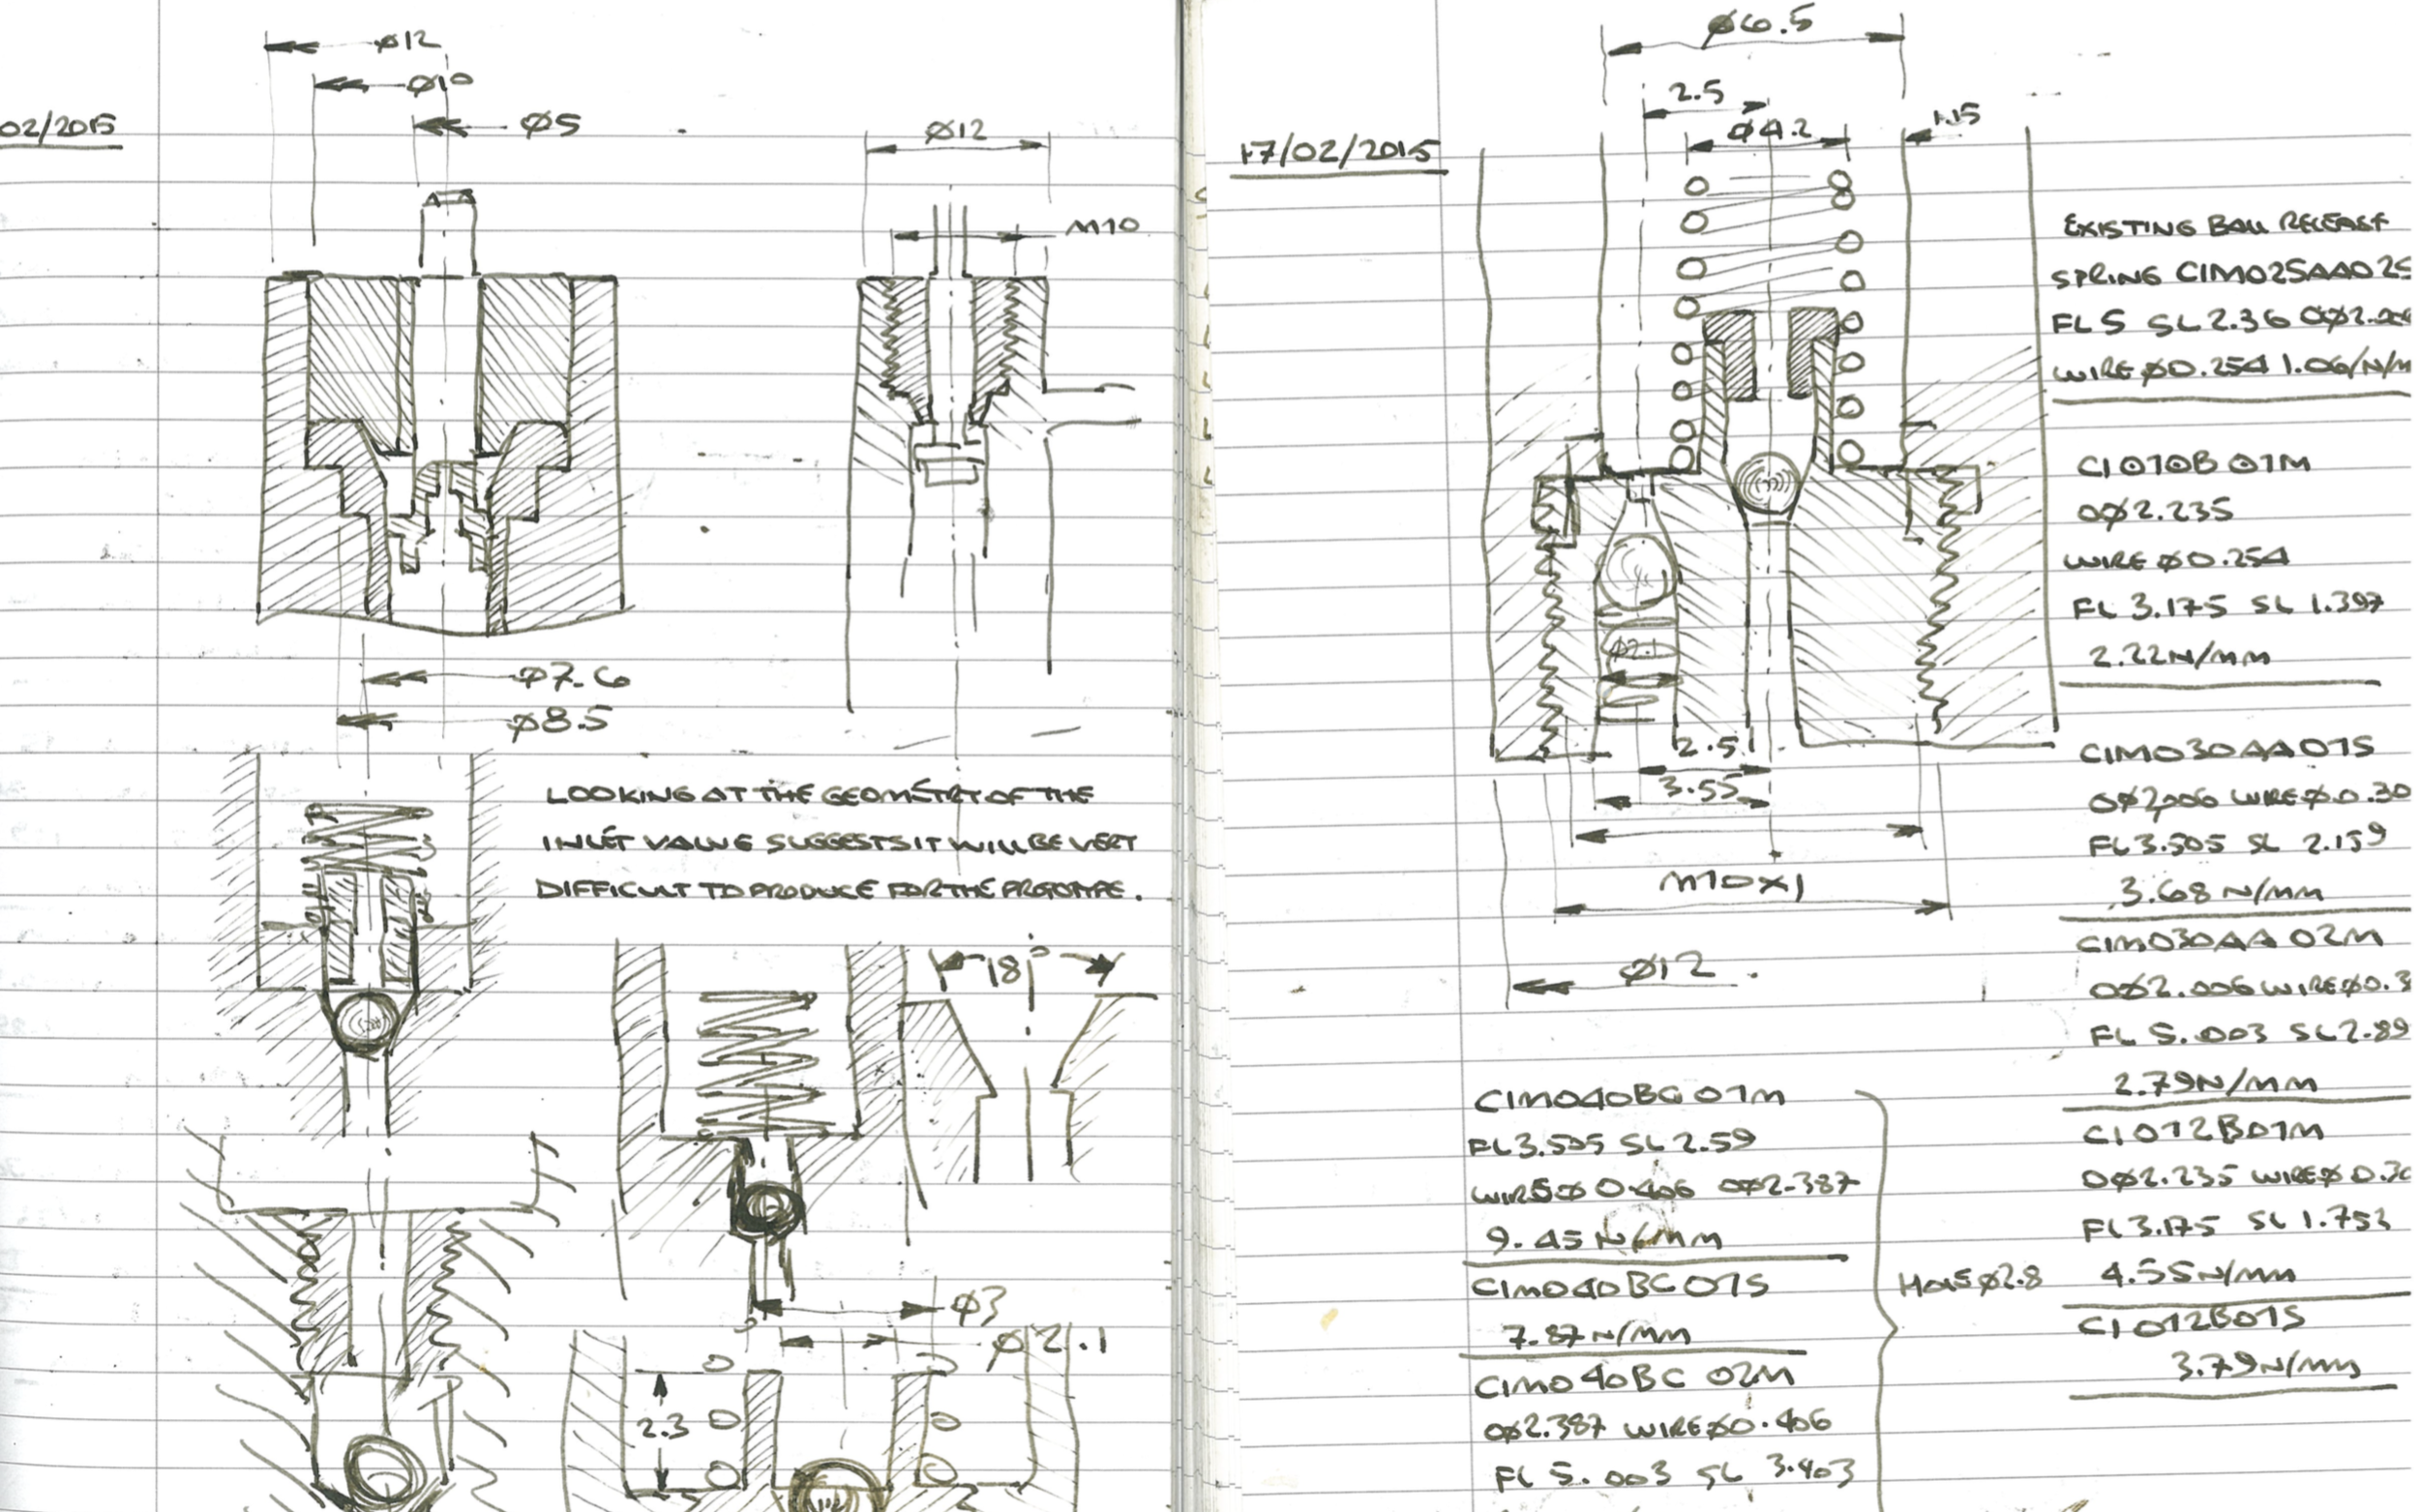 ø12
ø10
ø5
02/2015
ø12
M10
ø7.6
ø8.5
LOOKING AT THE GEOMETRY OF THE
INLET VALVE SUGGESTS IT WILL BE VERY
DIFFICULT TO PRODUCE FOR THE PROTOTYPE.
18°
ø3
ø2.1
2.3
17/02/2015
ø6.5
2.5
ø4.2
1.15
ø2.1
2.5
3.55
M10x1
ø12
EXISTING BALL RELEASE
SPRING CIM025AA02S
FL 5 SL 2.36
WIRE ø0.254 1.06/N/M
C1010B01M
Oø2.235
WIRE ø0.254
FL 3.175 SL 1.397
2.22N/MM
CIM030AA01S
Oø2,006 WIRE ø0.30
FL 3.505 SL 2.159
3.68 N/MM
CIM030AA02M
Oø2.006 WIRE ø0.3
FL 5.003 SL 2.89
2.79N/MM
C1012B01M
Oø2.235 WIRE ø0.30
FL 3.175 SL 1.753
4.55N/MM
C1012B01S
3.79N/MM
CIM040BG01M
FL 3.505 SL 2.59
WIRE ø 0.406 Oø2.387
9.45 N/MM
CIM040BC01S
7.87 N/MM
CIM040BC 02M
Oø2.387 WIRE ø0.406
FL 5.003 SL 3.403
HOLE ø2.8